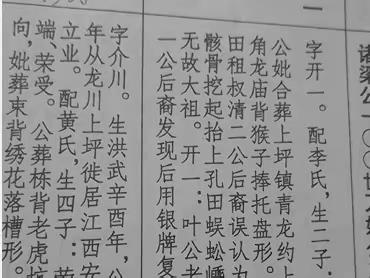 诸梁公一〇〇世
一
字开一。配李氏,生二子:
公妣合葬上坪镇青龙约上
角龙庙背猴子捧托盘形。
田租叔清二公后裔误认为
骸骨挖起抬上孔田蜈蚣嶂
无故大祖。开一:叶公老
一公后裔发现后用银牌复
字介川。生洪武辛酉年,
年从龙川上坪徙居江西安
立业。配黄氏,生四子:
端、荣受。公葬栋背老虎坑
向,妣葬束背绣花落槽形。